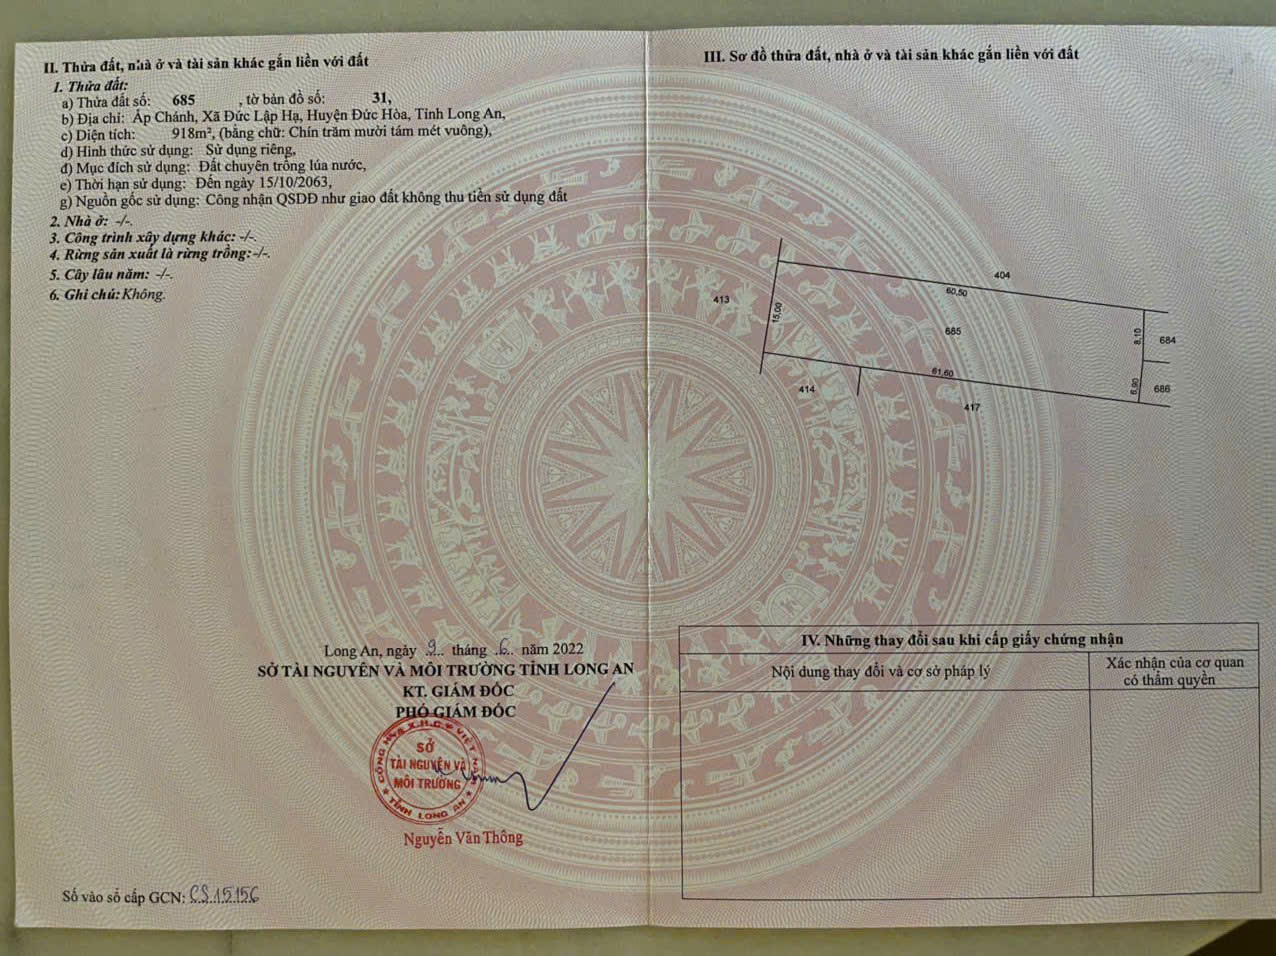 II. Thửa đất, nhà ở và tài sản khác gắn liền với đất
1. Thửa đất:
a) Thửa đất số: 685 , tờ bản đồ số: 31,
b) Địa chỉ: Ấp Chánh, Xã Đức Lập Hạ, Huyện Đức Hòa, Tỉnh Long An,
c) Diện tích: 918m², (bằng chữ: Chín trăm mười tám mét vuông),
d) Hình thức sử dụng: Sử dụng riêng,
đ) Mục đích sử dụng: Đất chuyên trồng lúa nước,
e) Thời hạn sử dụng: Đến ngày 15/10/2063,
g) Nguồn gốc sử dụng: Công nhận QSDĐ như giao đất không thu tiền sử dụng đất
2. Nhà ở: -/-.
3. Công trình xây dựng khác: -/-.
4. Rừng sản xuất là rừng trồng:-/-.
5. Cây lâu năm: -/-.
6. Ghi chú: Không.
Long An, ngày .9.. tháng .6.. năm 2022
SỞ TÀI NGUYÊN VÀ MÔI TRƯỜNG TỈNH LONG AN
KT. GIÁM ĐỐC
PHÓ GIÁM ĐỐC
CỘNG HÒA X.H.C.N VIỆT NAM
SỞ
TÀI NGUYÊN VÀ
MÔI TRƯỜNG
TỈNH LONG AN
Nguyễn Văn Thông
Số vào sổ cấp GCN: CS15156
III. Sơ đồ thửa đất, nhà ở và tài sản khác gắn liền với đất
404
60,50
413
15,00
685
8,10
684
61,60
6,90
686
414
417
IV. Những thay đổi sau khi cấp giấy chứng nhận
Nội dung thay đổi và cơ sở pháp lý
Xác nhận của cơ quan
có thẩm quyền